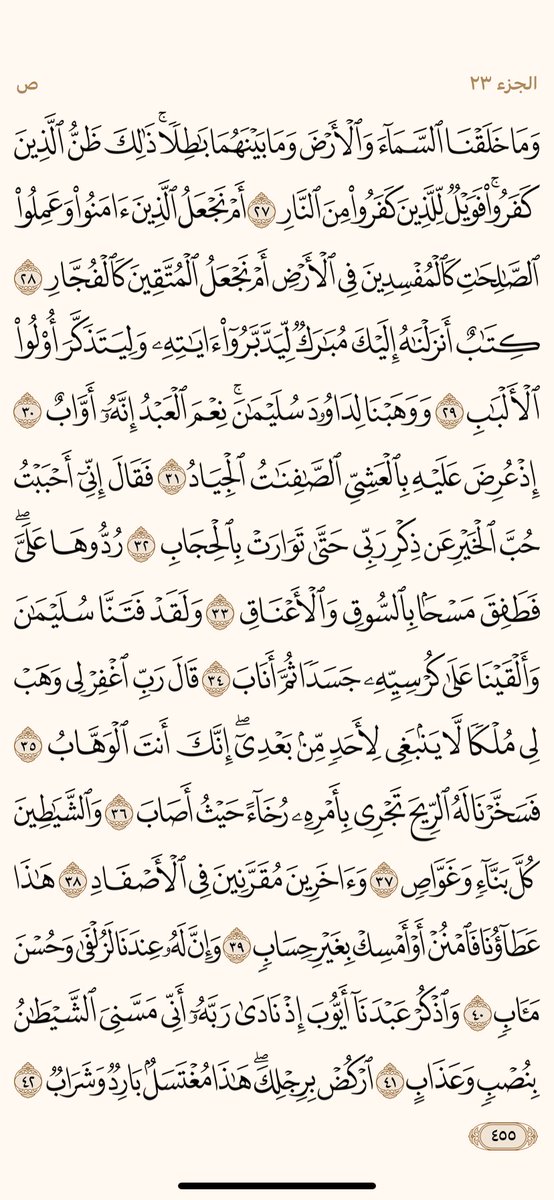 الجزء ٢٣
ص
وَمَا خَلَقْنَا ٱلسَّمَآءَ وَٱلْأَرْضَ وَمَا بَيْنَهُمَا بَٰطِلًا ۚ ذَٰلِكَ ظَنُّ ٱلَّذِينَ
كَفَرُوا۟ ۚ فَوَيْلٌ لِّلَّذِينَ كَفَرُوا۟ مِنَ ٱلنَّارِ ٢٧ أَمْ نَجْعَلُ ٱلَّذِينَ ءَامَنُوا۟ وَعَمِلُوا۟
ٱلصَّٰلِحَٰتِ كَٱلْمُفْسِدِينَ فِى ٱلْأَرْضِ أَمْ نَجْعَلُ ٱلْمُتَّقِينَ كَٱلْفُجَّارِ ٢٨
كِتَٰبٌ أَنزَلْنَٰهُ إِلَيْكَ مُبَٰرَكٌ لِّيَدَّبَّرُوٓا۟ ءَايَٰتِهِۦ وَلِيَتَذَكَّرَ أُو۟لُوا۟
ٱلْأَلْبَٰبِ ٢٩ وَوَهَبْنَا لِدَاوُۥدَ سُلَيْمَٰنَ ۚ نِعْمَ ٱلْعَبْدُ إِنَّهُۥٓ أَوَّابٌ ٣٠
إِذْ عُرِضَ عَلَيْهِ بِٱلْعَشِىِّ ٱلصَّٰفِنَٰتُ ٱلْجِيَادُ ٣١ فَقَالَ إِنِّىٓ أَحْبَبْتُ
حُبَّ ٱلْخَيْرِ عَن ذِكْرِ رَبِّى حَتَّىٰ تَوَارَتْ بِٱلْحِجَابِ ٣٢ رُدُّوهَا عَلَىَّ ۖ
فَطَفِقَ مَسْحًۢا بِٱلسُّوقِ وَٱلْأَعْنَاقِ ٣٣ وَلَقَدْ فَتَنَّا سُلَيْمَٰنَ
وَأَلْقَيْنَا عَلَىٰ كُرْسِيِّهِۦ جَسَدًا ثُمَّ أَنَابَ ٣٤ قَالَ رَبِّ ٱغْفِرْ لِى وَهَبْ
لِى مُلْكًا لَّا يَنۢبَغِى لِأَحَدٍ مِّنۢ بَعْدِىٓ ۖ إِنَّكَ أَنتَ ٱلْوَهَّابُ ٣٥
فَسَخَّرْنَا لَهُ ٱلرِّيحَ تَجْرِى بِأَمْرِهِۦ رُخَآءً حَيْثُ أَصَابَ ٣٦ وَٱلشَّيَٰطِينَ
كُلَّ بَنَّآءٍ وَغَوَّاصٍ ٣٧ وَءَاخَرِينَ مُقَرَّنِينَ فِى ٱلْأَصْفَادِ ٣٨ هَٰذَا
عَطَآؤُنَا فَٱمْنُنْ أَوْ أَمْسِكْ بِغَيْرِ حِسَابٍ ٣٩ وَإِنَّ لَهُۥ عِندَنَا لَزُلْفَىٰ وَحُسْنَ
مَـَٔابٍ ٤٠ وَٱذْكُرْ عَبْدَنَآ أَيُّوبَ إِذْ نَادَىٰ رَبَّهُۥٓ أَنِّى مَسَّنِىَ ٱلشَّيْطَٰنُ
بِنُصْبٍ وَعَذَابٍ ٤١ ٱرْكُضْ بِرِجْلِكَ ۖ هَٰذَا مُغْتَسَلٌۢ بَارِدٌ وَشَرَابٌ ٤٢
٤٥٥